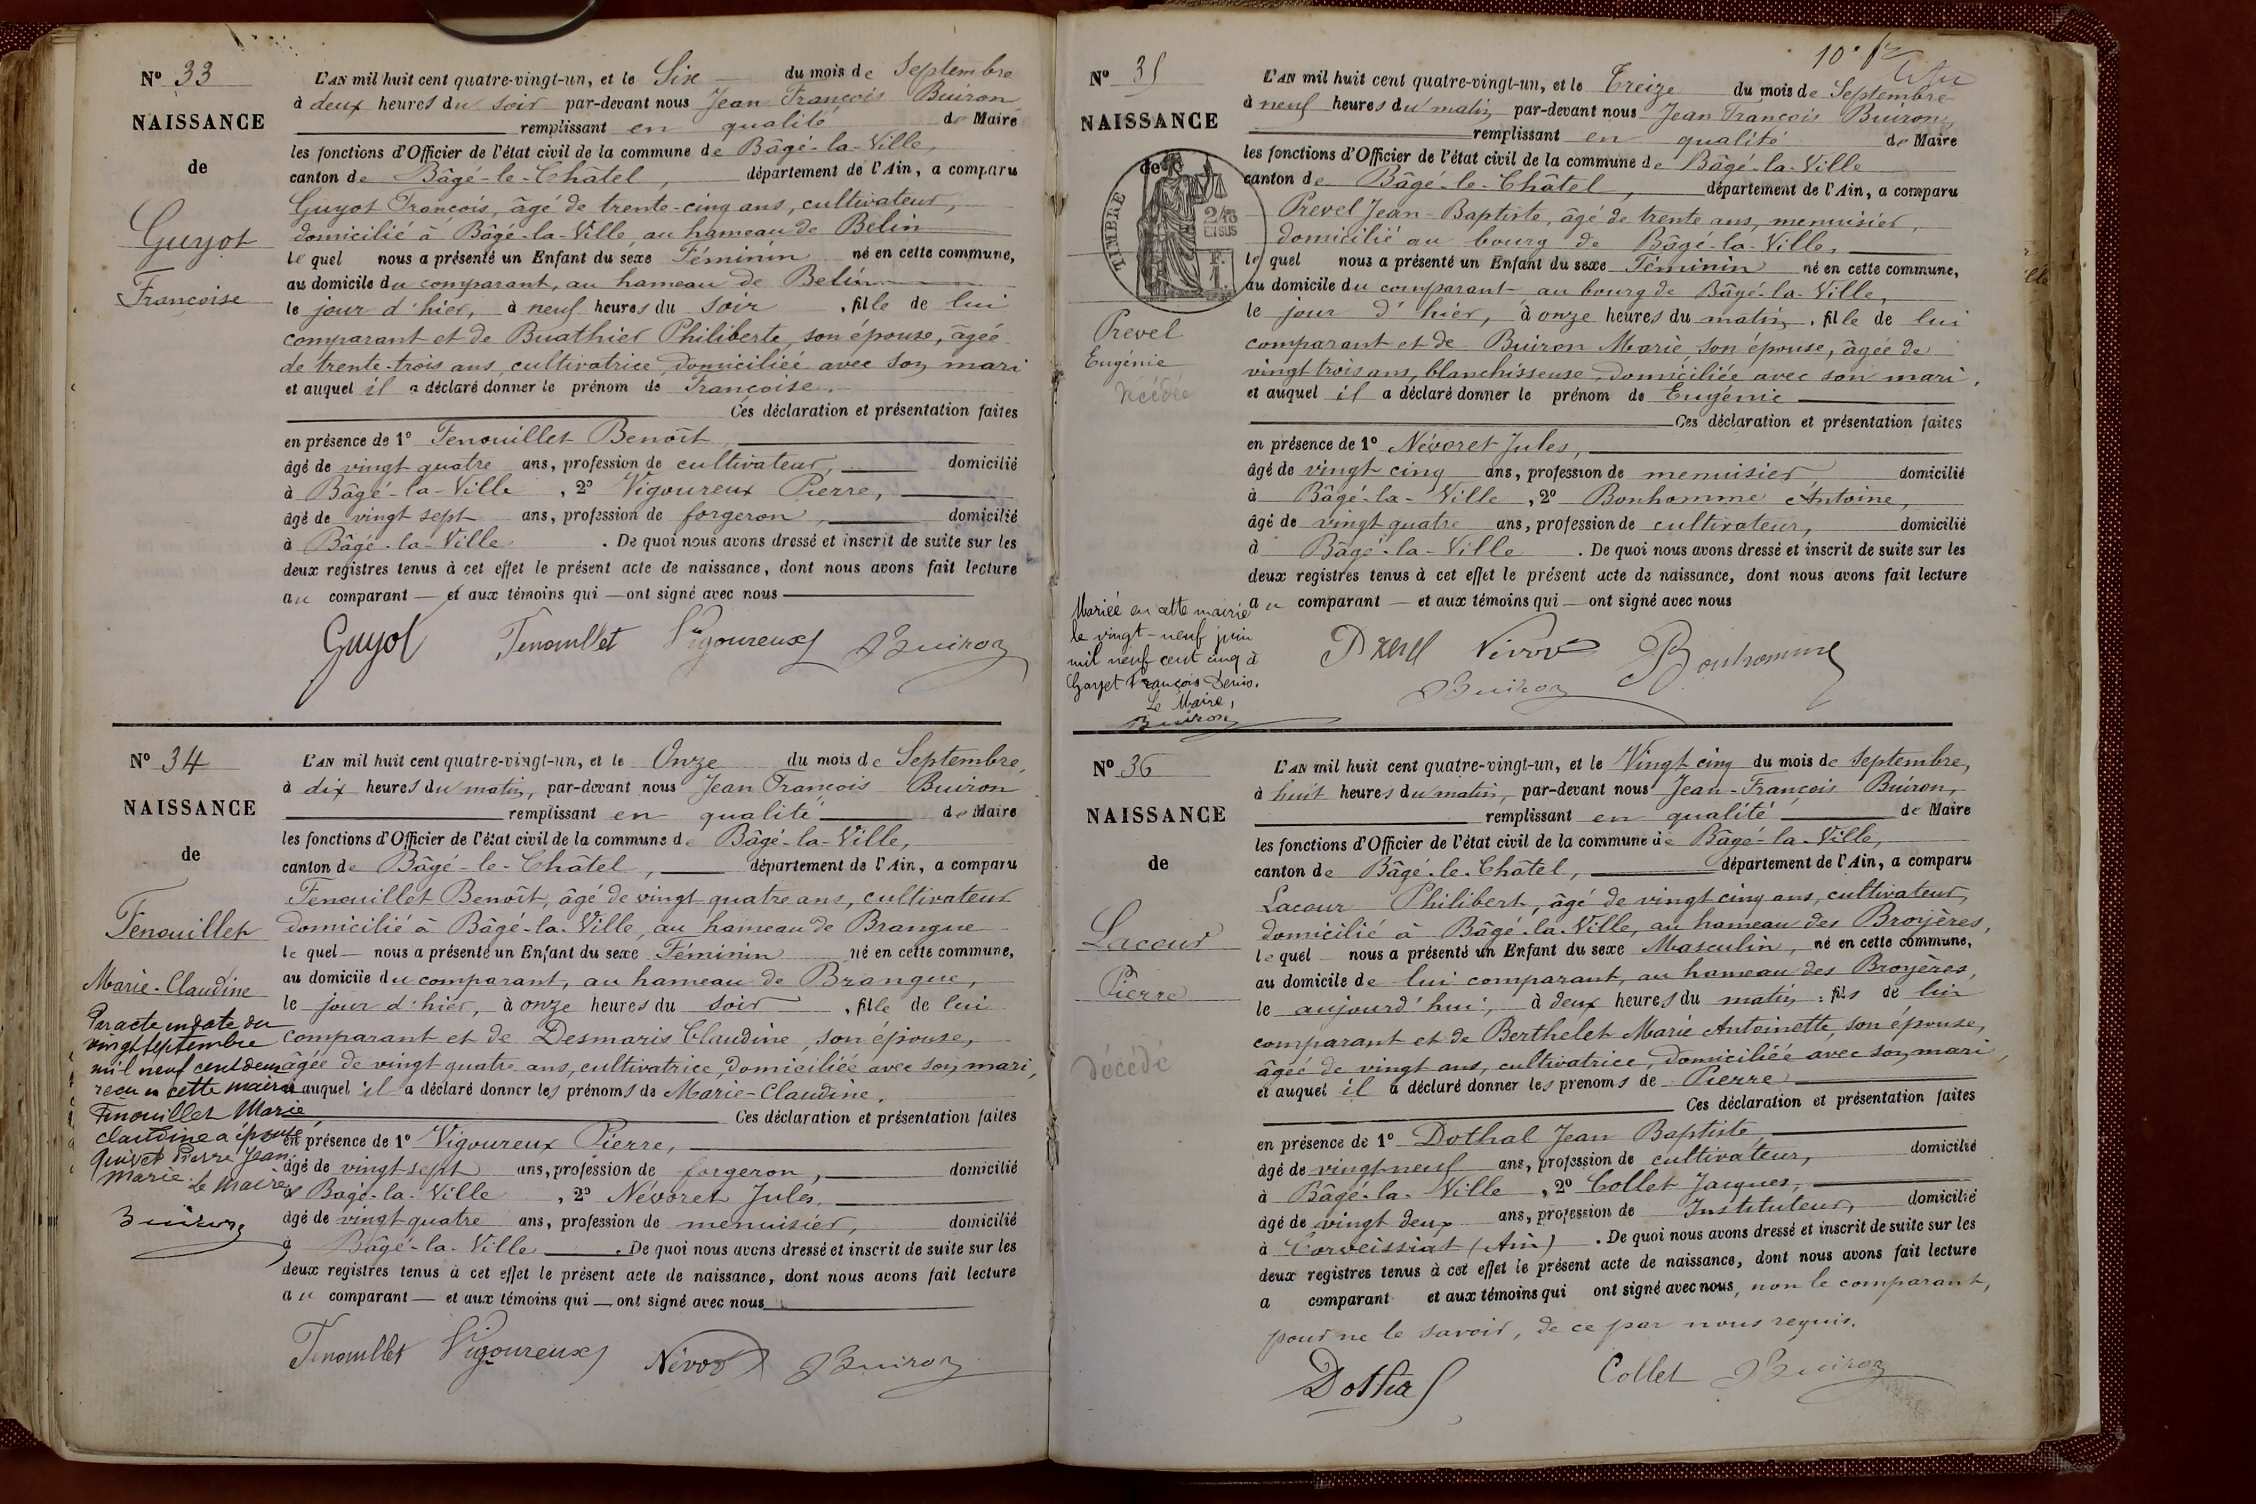 Nº 33
NAISSANCE
de
Guyot
Françoise
L'AN mil huit cent quatre-vingt-un, et le Six du mois de Septembre
à deux heures du soir par-devant nous Jean François Buiron
remplissant en qualité de Maire
les fonctions d'Officier de l'état civil de la commune de Bâgé-la-Ville,
canton de Bâgé-le-Châtel, département de l'Ain, a comparu
Guyot François, âgé de trente-cinq ans, cultivateur,
domicilié à Bâgé-la-Ville, au hameau de Belin
le quel nous a présenté un Enfant du sexe Féminin né en cette commune,
au domicile du comparant, au hameau de Belin
le jour d'hier, à neuf heures du soir, fille de lui
comparant et de Buathier Philiberte, son épouse, âgée
de trente-trois ans, cultivatrice, domiciliée avec son mari
et auquel il a déclaré donner le prénom de Françoise.
Ces déclaration et présentation faites
en présence de 1º Fenouillet Benoît,
âgé de vingt quatre ans, profession de cultivateur, domicilié
à Bâgé-la-Ville, 2º Vigoureux Pierre,
âgé de vingt sept ans, profession de forgeron, domicilié
à Bâgé-la-Ville. De quoi nous avons dressé et inscrit de suite sur les
deux registres tenus à cet effet le présent acte de naissance, dont nous avons fait lecture
au comparant — et aux témoins qui — ont signé avec nous
Guyot Fenouillet Vigoureux Buiron
Nº 34
NAISSANCE
de
Fenouillet
Marie-Claudine
Par acte en date du
vingt septembre
mil neuf cent deux
reçu en cette mairie
Fenouillet Marie
Claudine a épousé
Quivet Pierre Jean
Marie. Le Maire,
Buiron
L'AN mil huit cent quatre-vingt-un, et le Onze du mois de Septembre,
à dix heures du matin, par-devant nous Jean François Buiron
remplissant en qualité de Maire
les fonctions d'Officier de l'état civil de la commune de Bâgé-la-Ville,
canton de Bâgé-le-Châtel, département de l'Ain, a comparu
Fenouillet Benoît, âgé de vingt quatre ans, cultivateur
domicilié à Bâgé-la-Ville, au hameau de Brangue
le quel — nous a présenté un Enfant du sexe Féminin né en cette commune,
au domicile du comparant, au hameau de Brangue,
le jour d'hier, à onze heures du soir, fille de lui
comparant et de Desmaris Claudine, son épouse,
âgée de vingt quatre ans, cultivatrice, domiciliée avec son mari,
et auquel il a déclaré donner les prénoms de Marie-Claudine.
Ces déclaration et présentation faites
en présence de 1º Vigoureux Pierre,
âgé de vingt-sept ans, profession de forgeron, domicilié
à Bagé-la-Ville, 2º Névoret Jules,
âgé de vingt-quatre ans, profession de menuisier, domicilié
à Bâgé-la-Ville. De quoi nous avons dressé et inscrit de suite sur les
deux registres tenus à cet effet le présent acte de naissance, dont nous avons fait lecture
au comparant — et aux témoins qui — ont signé avec nous
Fenouillet Vigoureux Névoret Buiron
10e
Nº 35
NAISSANCE
de
TIMBRE
2/10
EN SUS
F.
1.
Prevel
Eugénie
Décédée
Mariée en cette mairie
le vingt-neuf juin
mil neuf cent cinq à
François Denis.
Le Maire,
Buiron
L'AN mil huit cent quatre-vingt-un, et le Treize du mois de Septembre
à neuf heures du matin, par-devant nous Jean François Buiron,
remplissant en qualité de Maire
les fonctions d'Officier de l'état civil de la commune de Bâgé-la-Ville
canton de Bâgé-le-Châtel, département de l'Ain, a comparu
Prevel Jean-Baptiste, âgé de trente ans, menuisier,
domicilié au bourg de Bâgé-la-Ville,
le quel nous a présenté un Enfant du sexe Féminin né en cette commune,
au domicile du comparant au bourg de Bâgé-la-Ville,
le jour d'hier, à onze heures du matin, fille de lui
comparant et de Buiron Marie, son épouse, âgée de
vingt trois ans, blanchisseuse, domiciliée avec son mari,
et auquel il a déclaré donner le prénom de Eugénie
Ces déclaration et présentation faites
en présence de 1º Névoret Jules,
âgé de vingt cinq ans, profession de menuisier domicilié
à Bâgé-la-Ville, 2º Bonhomme Antoine,
âgé de vingt quatre ans, profession de cultivateur, domicilié
à Bâgé-la-Ville. De quoi nous avons dressé et inscrit de suite sur les
deux registres tenus à cet effet le présent acte de naissance, dont nous avons fait lecture
au comparant — et aux témoins qui — ont signé avec nous
Prevel Névoret Bonhomme
Buiron
Nº 36
NAISSANCE
de
Lacour
Pierre
Décédé
L'AN mil huit cent quatre-vingt-un, et le Vingt cinq du mois de Septembre,
à huit heures du matin, par-devant nous Jean-François Buiron,
remplissant en qualité de Maire
les fonctions d'Officier de l'état civil de la commune de Bâgé-la-Ville,
canton de Bâgé-le-Châtel, département de l'Ain, a comparu
Lacour Philibert, âgé de vingt cinq ans, cultivateur,
domicilié à Bâgé-la-Ville, au hameau des Broyères,
le quel nous a présenté un Enfant du sexe Masculin, né en cette commune,
au domicile de lui comparant, au hameau des Broyères,
le aujourd'hui, à deux heures du matin, fils de lui
comparant et de Berthelet Marie Antoinette, son épouse,
âgée de vingt ans, cultivatrice, domiciliée avec son mari,
et auquel il a déclaré donner les prénoms de Pierre
Ces déclaration et présentation faites
en présence de 1º Dothal Jean Baptiste
âgé de vingt-neuf ans, profession de cultivateur, domicilié
à Bâgé-la-Ville, 2º Collet Jacques,
âgé de vingt deux ans, profession de Instituteur, domicilié
à Corveissiat (Ain). De quoi nous avons dressé et inscrit de suite sur les
deux registres tenus à cet effet le présent acte de naissance, dont nous avons fait lecture
a comparant et aux témoins qui ont signé avec nous, non le comparant,
pour ne le savoir, de ce par nous requis.
Dothal Collet Buiron